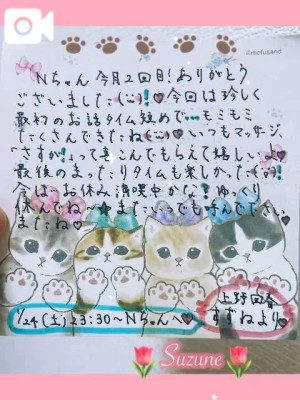 ©mofusand
Nちゃん 今月2回目!ありがとう
ございました(¨)!♡今回は珍しく
最初のお話タイム短めで…モミモミ
たくさんできたね(¨)♡いつもマッサージ
"さすが!"って喜んでもらえて嬉しいよ♡
最後のまったりタイムも楽しかった(¨)!
今は…お休み満喫中かな!ゆっくり
休んでね〜★またいつでも呼んで下さい
またね♡
1/24(土)23:30〜Nちゃんへ♡
上野回春
すずねより♡
Suzune